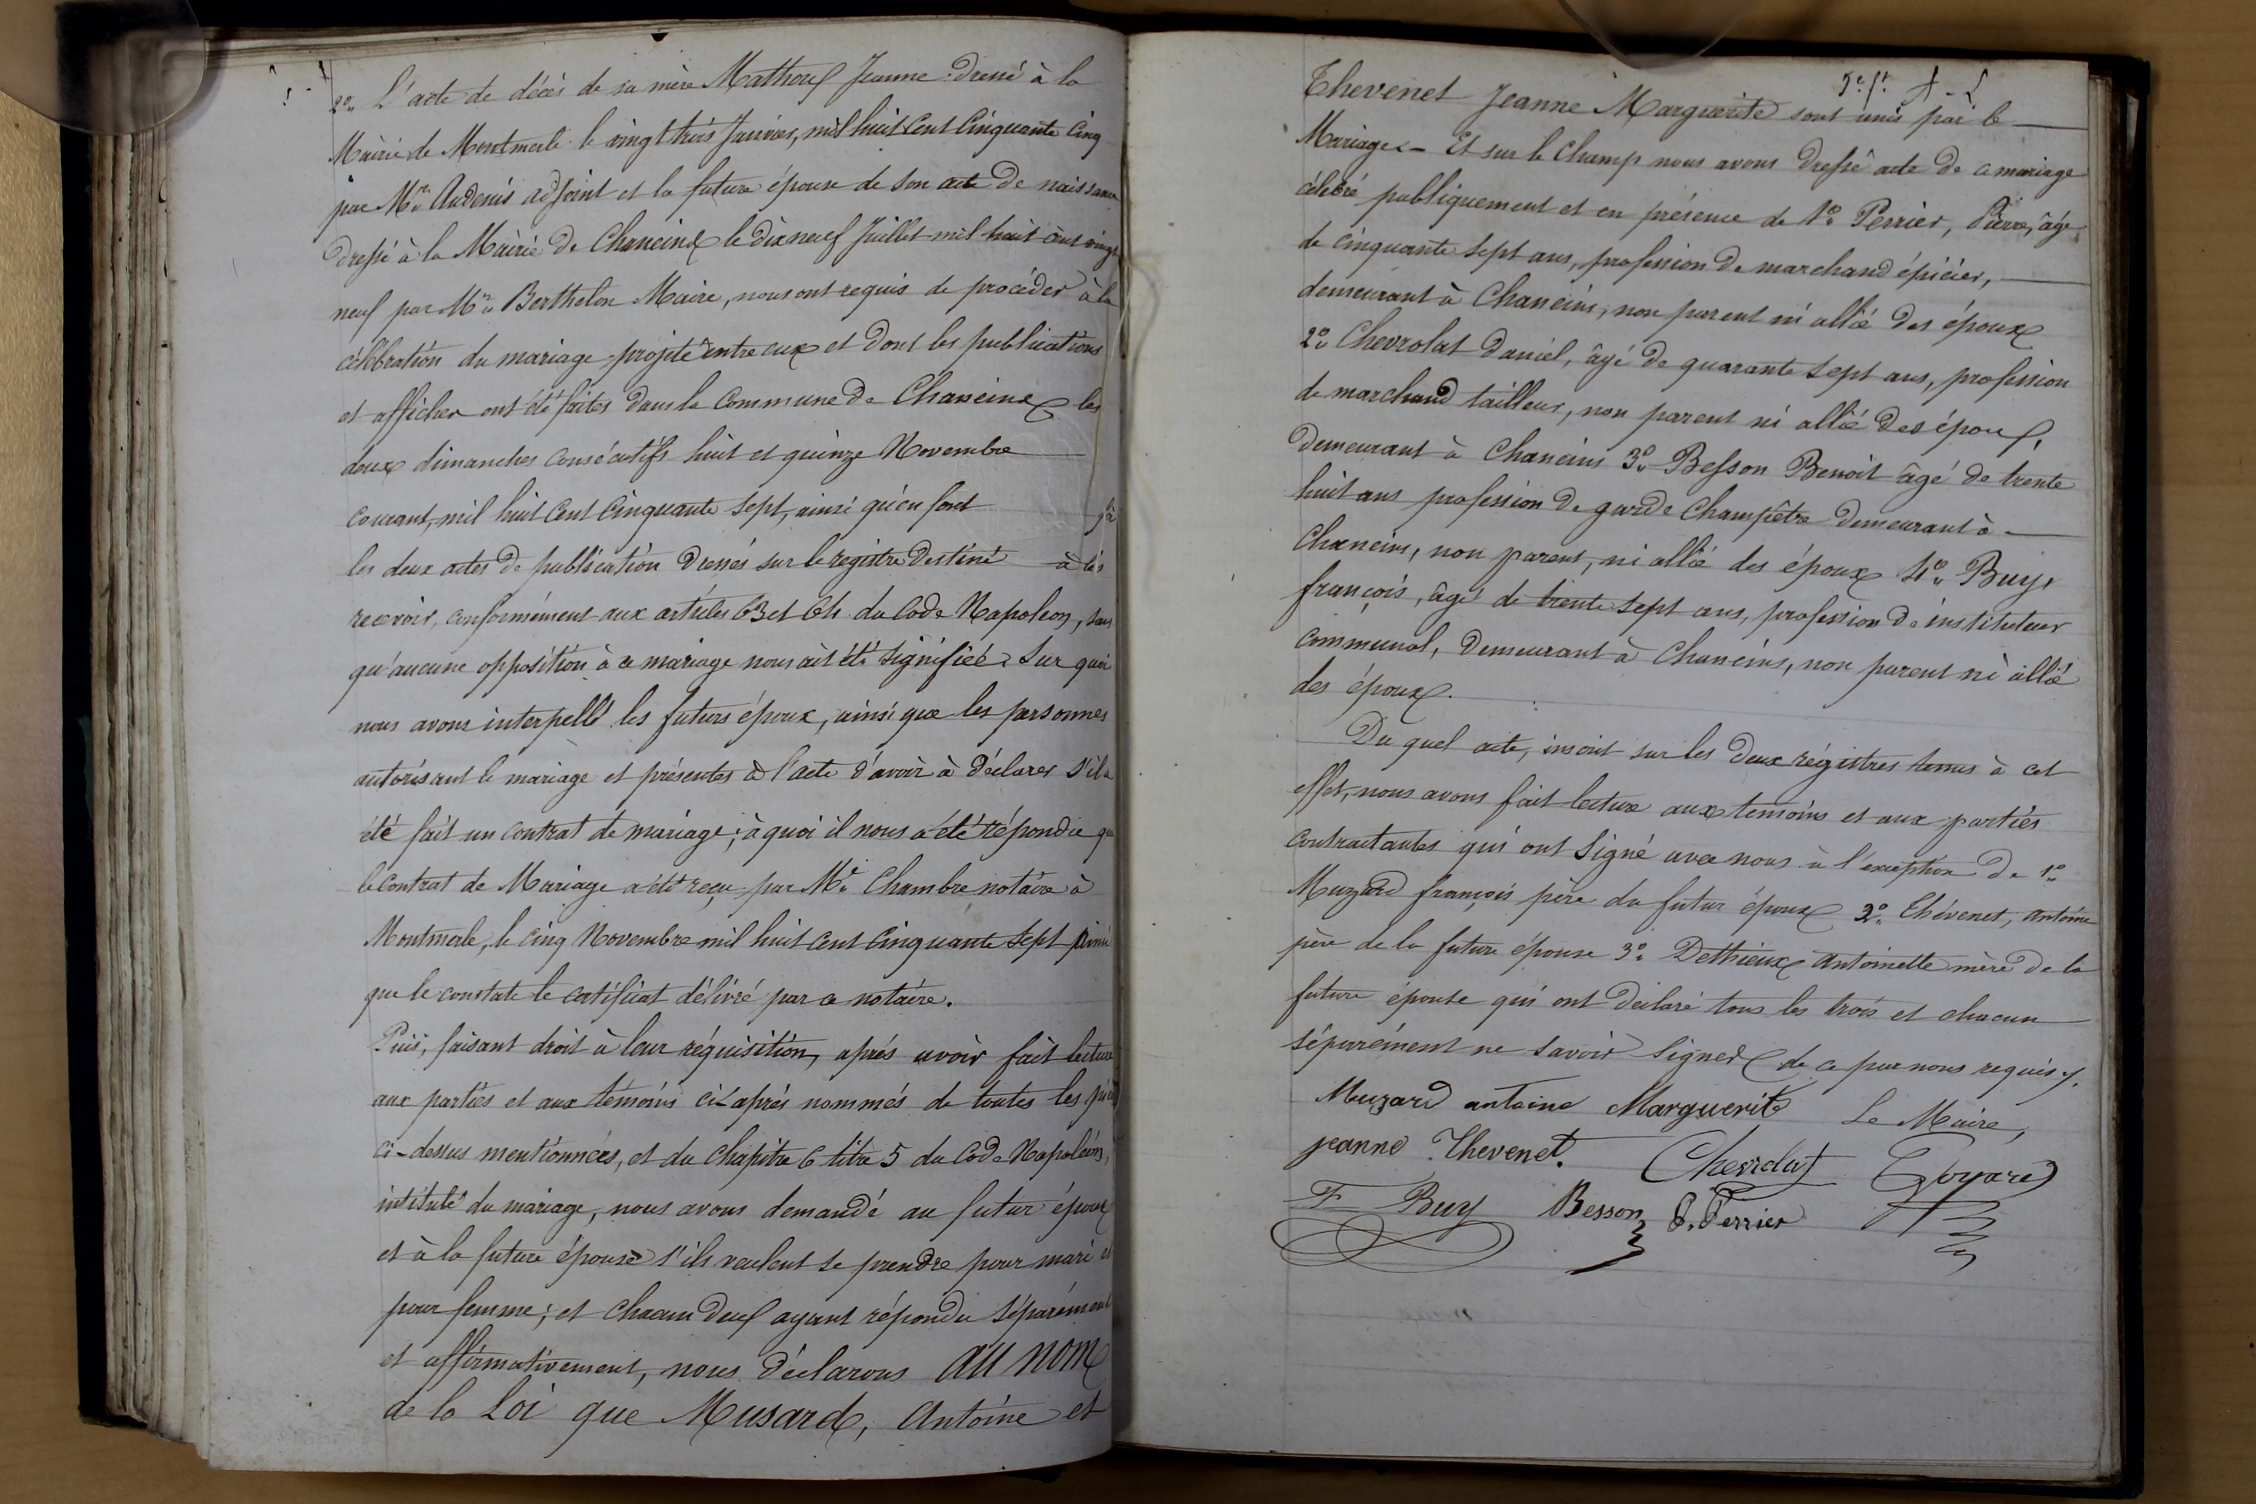 2o. L'acte de décès de sa mère Mathouf Jeanne dressé à la
Mairie de Montmerle le vingt trois Janvier, mil huit cent cinquante cinq
par Mr. Audenis adjoint et la future épouse de son acte de naissance
dressé à la Mairie de Chaneins le dix neuf Juillet mil huit cent vingt
neuf par Mr. Berthelon Maire, nous ont requis de procéder à la
célébration du mariage projeté entre eux et dont les publications
et affiches ont été faites dans la commune de Chaneins les
deux dimanches consécutifs huit et quinze Novembre
courant, mil huit cent cinquante sept, ainsi qu'en font
les deux actes de publication dressés sur le registre destiné à les
recevoir, conformément aux articles 63 et 64 du Code Napoléon, sans
qu'aucune opposition à ce mariage nous ait été signifiée. Sur quoi
nous avons interpellé les futurs époux, ainsi que les personnes
autorisant le mariage et présentes à l'acte d'avoir à déclarer s'il a
été fait un contrat de mariage; à quoi il nous a été répondu que
le contrat de Mariage a été reçu par Me. Chambre notaire à
Montmerle, le cinq Novembre mil huit cent cinquante sept ainsi
que le constate le certificat délivré par ce notaire.
Puis, faisant droit à leur réquisition, après avoir fait lecture
aux parties et aux témoins ci-après nommés de toutes les pièces
ci-dessus mentionnées, et du chapitre 6 titre 5 du Code Napoléon,
intitulé du mariage, nous avons demandé au futur époux
et à la future épouse s'ils veulent se prendre pour mari et
pour femme; et chacun deux ayant répondu séparément
et affirmativement, nous déclarons au nom
de la Loi que Musard, Antoine et
Thevenet Jeanne Marguerite sont unis par le
Mariage. - Et sur le champ nous avons dressé acte de ce mariage
célébré publiquement et en présence de 1o. Perrier, Pierre, âgé
de cinquante sept ans, profession de marchand épicier,
demeurant à Chaneins, non parent ni allié des époux
2o. Chevrolat Daniel, âgé de quarante sept ans, profession
de marchand tailleur, non parent ni allié des époux,
demeurant à Chaneins 3o. Besson Benoit âgé de trente
huit ans profession de garde champêtre demeurant à
Chaneins, non parent, ni allié des époux 4o. Buy,
françois, âgé de trente sept ans, profession de instituteur
communal, demeurant à Chaneins, non parent ni allié
des époux.
Du quel acte, inscrit sur les deux régistres tenus à cet
effet, nous avons fait lecture aux temoins et aux parties
contractantes qui ont signé avec nous à l'exception de 1o.
Muzard françois père du futur époux 2o. Thévenet, antoine
père de la future épouse 3o. Dethieux Antoinette mère de la
future épouse qui ont déclaré tous les trois et chacun
séparément ne savoir signer de ce par nous requis.
Muzard antoine Marguerite Le Maire,
jeanne Thevenet. Chevrolat Goyard
F Buy Besson P. Perrier